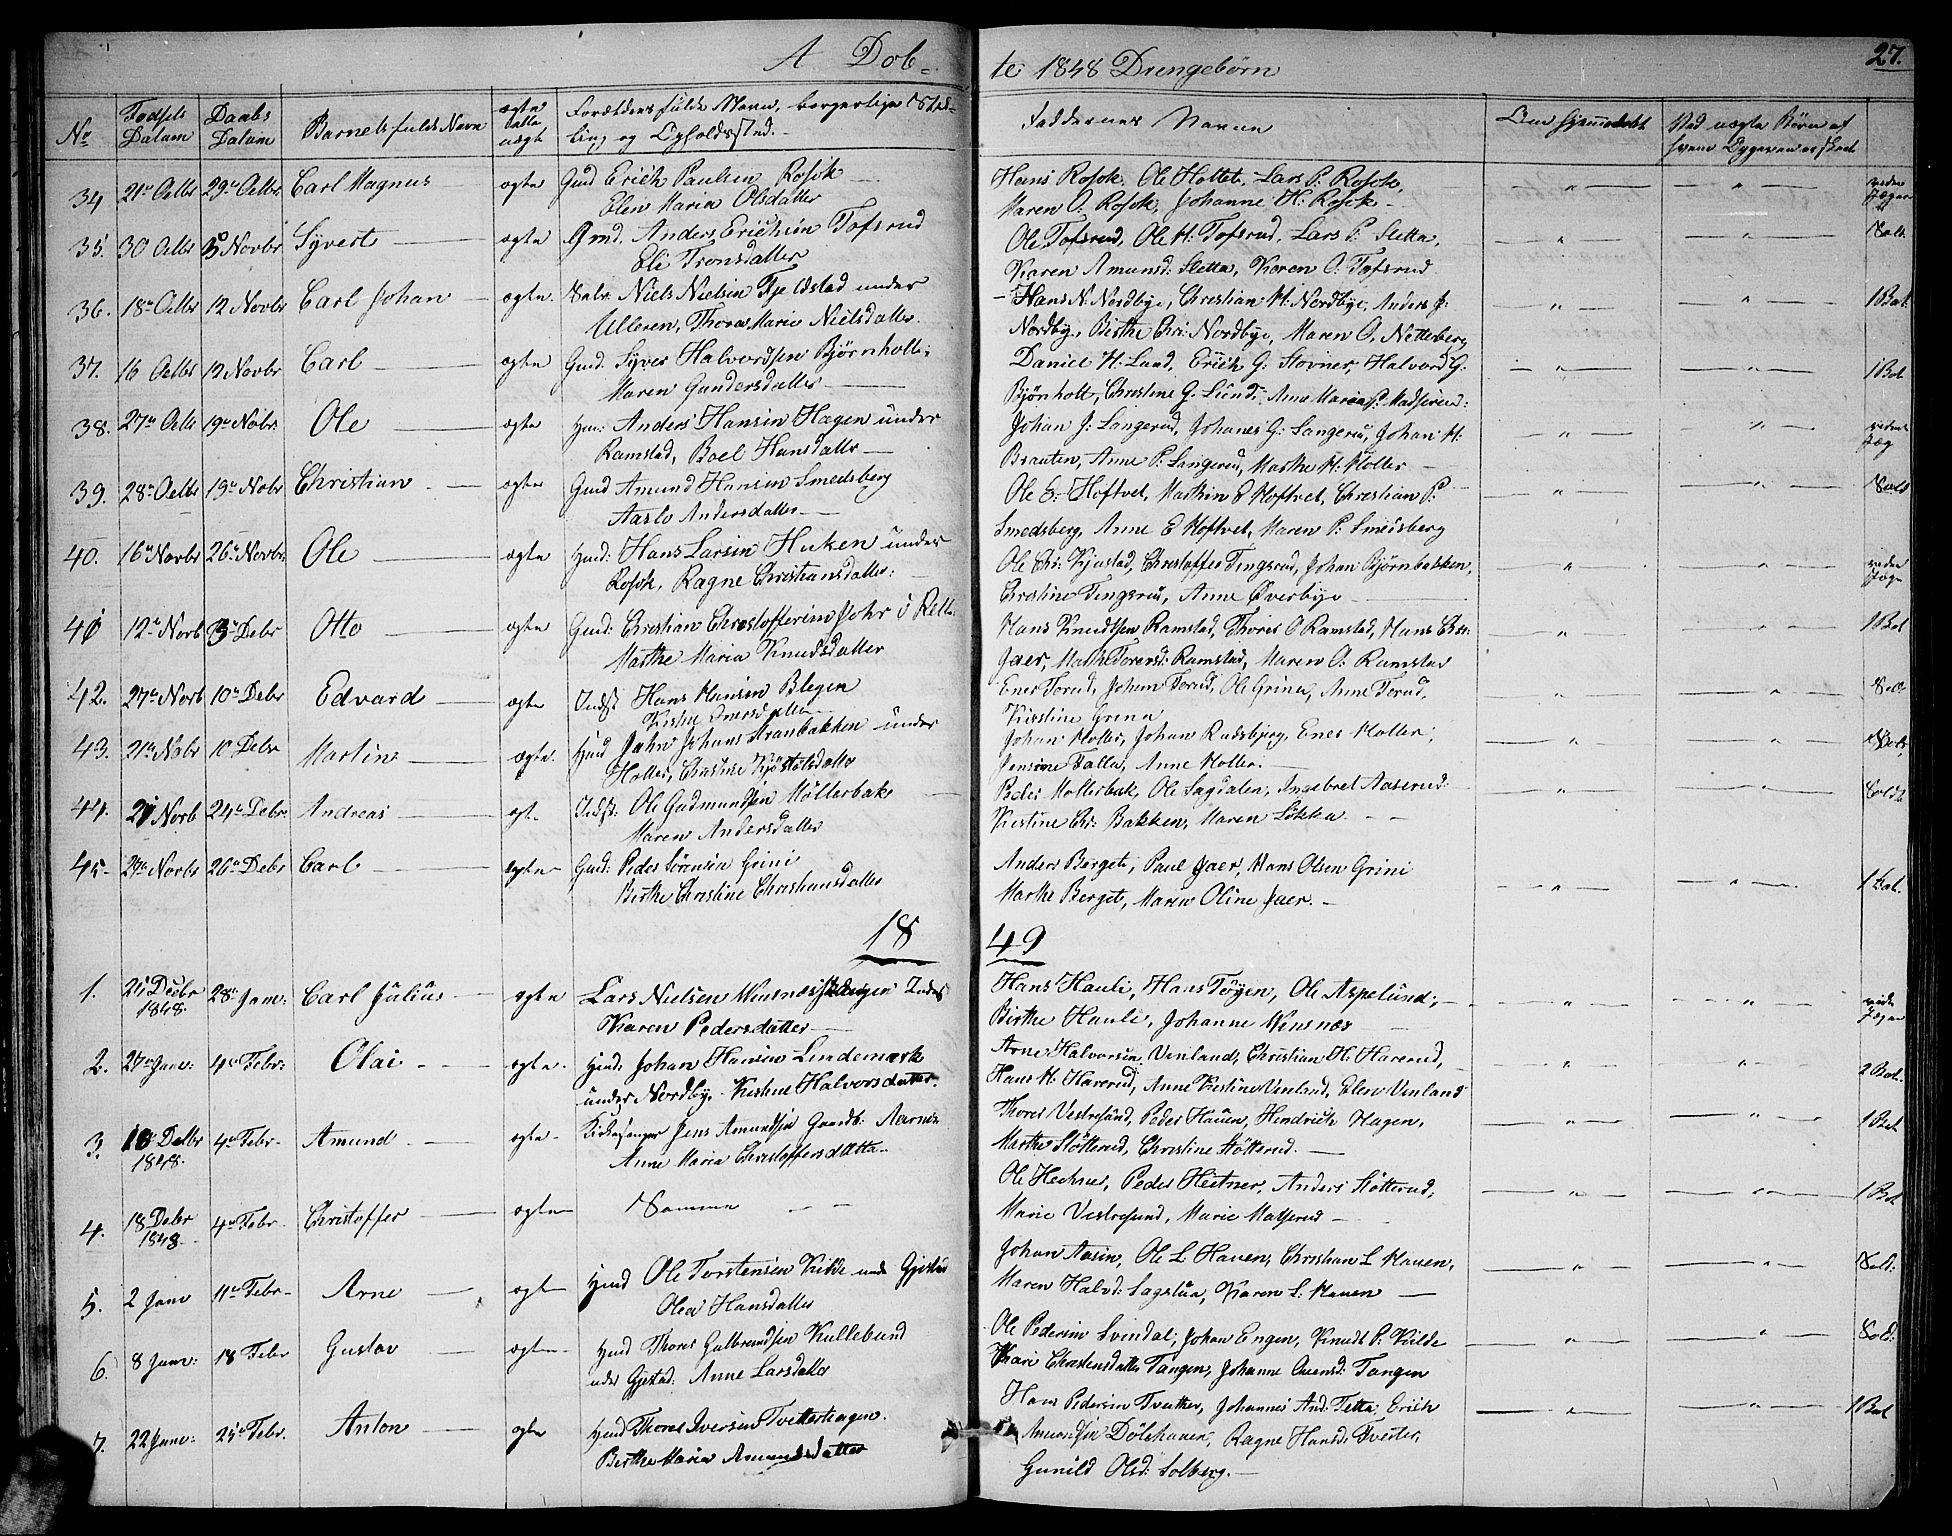 A Döb-
te 1848 Drengebörn 27.
No Födsels Datum Daabs Datum Barnets fulde Navn ægte eller uægt Forældrenes fulde Navn, borgerlige Stilling og Opholdssted. Faddernes Navne Om hjemmedøbt Ved uægte Børn af hvem Opgaven er skeet
34 21de Octbr 29de Octbr. Carl Magnus ægte Gmd Erich Paulsen Roseök
Elen Maria Olsdatter
Hans Ole Holtet, Lars P:
Maren O. Johanne H.
35. 30 Octbr 5 Novbr Syvert ægte Gmd. Anders Erichsen Tofsrud
Eli Tronsdatter
Ole Tofsrud, Ole H: Tofsrud, Lars P: Sletta,
Karen Amunsd: Sletta, Karen O: Tofsrud
36. 18de Octbr 12 Novbr Carl Johan ægte. Niels Nielsen Fjeldstad under
Ulleren, Thora Marie Nielsdatter.
Hans N. Nordbye, Christian H: Nordbye, Anders J:
Nordby, Birthe Chr: Nordbye, Maren O. Netteberg
1 Bat.
37. 16 Octbr 12 Novbr Carl ægte Gmd. Syver Halvordsen Björnholt:
Maren Gundersdatter
Daniel H: Lund, Erich G: Stovner, Halvord G.
Bjönholt, Christine G. Lund, Anne Maria P.
1 Bat
38. 27de Octb 19de Nobr. Ole ægte Hm: Anders Hansen Hagen under
Ramstad, Boel Hansdatter
Johan J: Langerud, Johanes G: Langerud, Johan H:
Brauten, Anne P: Langerud, Marthe H: Holter
39. 28de Octbr 19de Nobr Christian ægte Gmd Amund Hansen Smedsberg
Anders datter
Ole E: Hoftvet, Marthin E Hoftvet, Christian P:
Smedsberg, Anne E Hoftvet, Maren P: Smedsberg
40. 16de Novbr 26de Novbr. Ole ægte Hmd: Hans Larsen Huken under
Ragne Christiansdatter:
Ole Chr: Kjustad, Christoffer Tingsrud, Johan Björnbakken,
Christine Tingsrud, Anne Överbye
41 12de Norb 3de Debr Otto ægte Gmd: Christian Christoffersen
Marthe Maria Knudsdatter
Hans Knudsen Ramstad, Thores O Ramstad, Hans Chr:
Jaer, Marthe Toresd: Ramstad, Maren O: Ramstad
1 Bat
42. 27de Norb 10de Debr Edvard ægte Indst Hans Hansen Blegen
Kirstine
Ener Torud, Johan Torud, Ole Grina, Anne Torud,
Kirstine Grina
43. 21de Nobr 10 Debr Martin ægte. Hmd Jahn Johans under
Holter, Christine
Johan Holter, Johan Rudsbjerg, Ener Holter,
Jensine Falla, Anne Holter.
44. 21 Norb 24de Debr Andreas ægt. Indst. Ole Gudmundsen Möllerbak
Maren Andersdatter
Peder Möllerbak, Ole Sagdalen, Ingebret Aaserud
Kirstine Chr: Bakken, Maren Lökka
45 29de Norbr 26de Debr Carl ægte Gmd: Peder Sörensen Grini
Birthe Christine Christiansdatter
Anders Berget, Paul Jaer, Hans Olsen Grini
Marthe Berget, Maren Oline Jaer.
1 Bat.
18 49
1. 25 Decbr 1848. 28de Jam: Carl Julius ægte Lars Nielsen
Karen Pedersdatter
Hans Hauli, Hans Töyen, Ole Aspelund,
Birthe Hauli, Johanne
2. 27de Jam: 4de Febr: Olai ægte. Hmd: Johan Hansen Lindemark
under Nordby. Kirstine Halvorsdatter.
Arne Halvorsen Venland, Christian H: Harerud,
Hans H: Harerud, Anne Kirstine Venland, Elen Venland
2 Bat.
3. 18 Decbr 1848. 4de Febr Amund ægte Kirkesanger Jens Amundsen Aarnes
Anne Maria Christoffersdatter
Thores Vestresund, Peder Hauen, Hindrich Hagen,
Marthe Slötterud, Christine Slötterud.
1 Bat
4. 18 Debr 1848. 4de Febr Christoffer ægte Samme
Ole Heckner, Peder Heitner, Anders Slötterud,
Marie Vestresund, Marie
1 Bat
5. 2 Jam 11de Febr Arne ægte Hmd Ole Torstensen Kilde unde Gjestad
Olea Hansdatter
Johan Aasen, Ole L. Hauen, Christian L Hauen,
Maren Halvd: Sagstua, Karen L. Hauen
Sold:
6. 8 Jam: 18 Febr Gustav ægte Hmd Thores Gulbrandsen Kullebund
under Gjestad. Anne Larsdatter
Ole Pedersen Svindal, Johan Engen, Knudt P. Kilde
Kari Christensdatter Tangen, Johanne Tangen
Sold:
7. 22 Jam: 25de Febr. Anton ægte Hmd Thores Iversen Tvetterhagen.
Berthe Maria Amundsdatter
Hans Pedersen Johannes And: Erich
Amundsen Dölehauen, Ragne Hansd:
Gunild Olsd: Solberg.
1 Bat